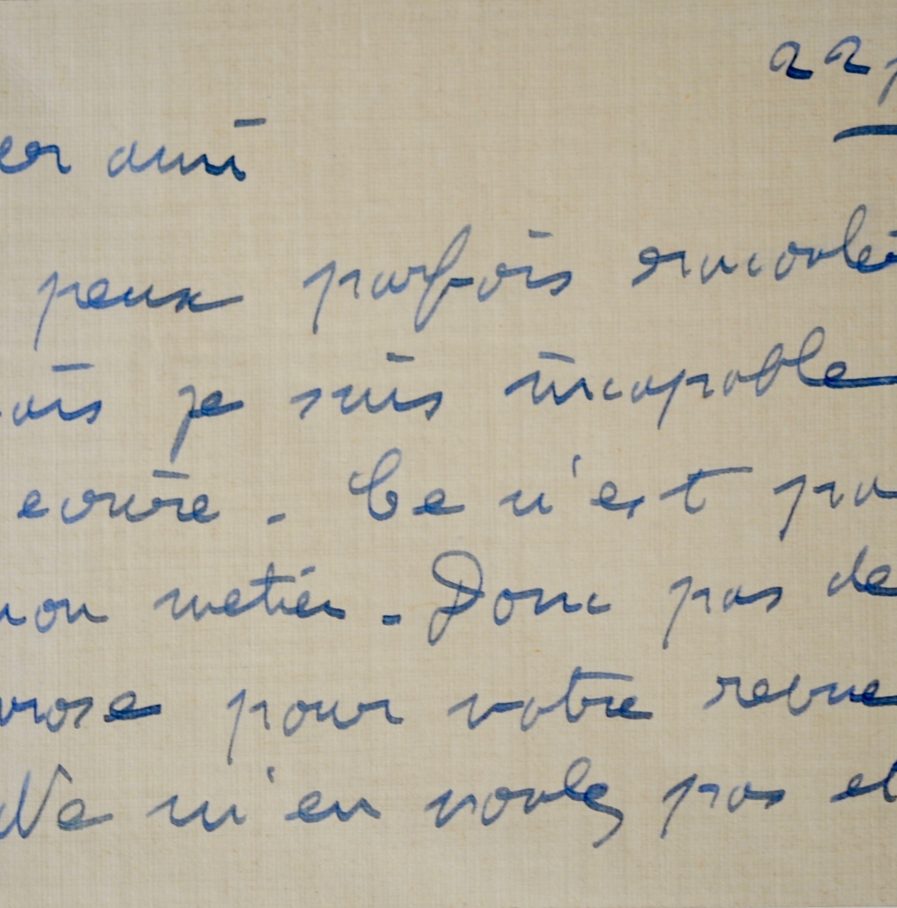 22
er ami
peux parfois raconter
ois je suis incapable
ecrire. Ce n'est pa
mon metier. Donc pas de
prose pour votre revue
Ne m'en voulez pas et